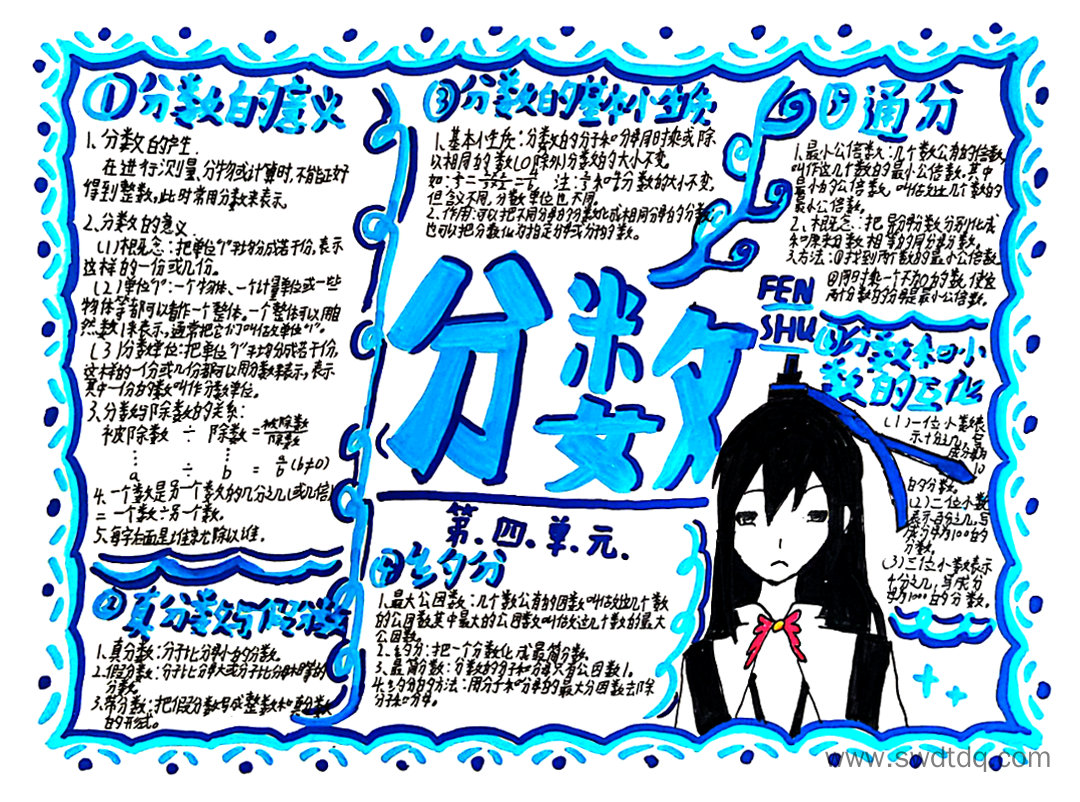 ①分数的意义
1、分数的产生.
在进行测量、分物或计算时,不能正好
得到整数,此时常用分数来表示。
2、分数的意义
(1)概念:把单位"1"平均分成若干份,表示
这样的一份或几份。
(2)单位"1":一个物体、一个计量单位或一些
物体等都可以看作一个整体,一个整体可以用自
然数1来表示,通常把它们叫做单位"1"。
(3)分数单位:把单位"1"平均分成若干份,
这样的一份或几份都可以用分数来表示,表示
其中一份的数叫作分数单位。
3、分数与除数的关系:
被除数 ÷ 除数 = 被除数/除数
a ÷ b = a/b (b≠0)
4.一个数是另一个数的几分之几(或几倍)
= 一个数÷另一个数。
5、每字后面是谁就除以谁。
②真分数与假分数
1、真分数:分子比分母小的分数。
2、假分数:分子比分母大或分子比分母相等的
分数。
3、带分数:把假分数写成整数和真分数
的形式。
③分数的基本性质
1、基本性质:分数的分子和分母同时乘或除
以相同的数(0除外)分数的大小不变。
但含义不同,分数单位也不同。
2、作用:可以把不同分母的分数化成相同分母的分数
也可以把分数化为指定分母或分子的数。
分数
FEN
SHU
第.四.单.元.
④约分
1、最大公因数:几个数公有的因数叫做这几个数
的公因数其中最大的公因数叫做这几个数的最大
公因数。
2、约分:把一个分数化成最简分数。
3、最简分数:分数的分子和分母只有公因数1。
4、约分的方法:用分子和分母的最大公因数去除
分子和分母。
⑤通分
1、最小公倍数:几个数公有的倍数
叫作这几个数的最小公倍数,其中
最小的公倍数,叫做这几个数的
最小公倍数。
2、概念:把异分母分数分别化成
和原来分数相等的同分母分数。
3、方法:①找到两个数的最小公倍数
②同时乘一个不为0的数,使这
两个分数的分母是最小公倍数。
⑥分数和小
数的互化
(1)一位小数表
示十分之几,写
成分母为
10
的分数。
(2)二位小数
表示百分之几,写
成分母为100的
分数。
(3)三位小数表示
千分之几,写成分
母为1000的分数。
www.swdtdq.com